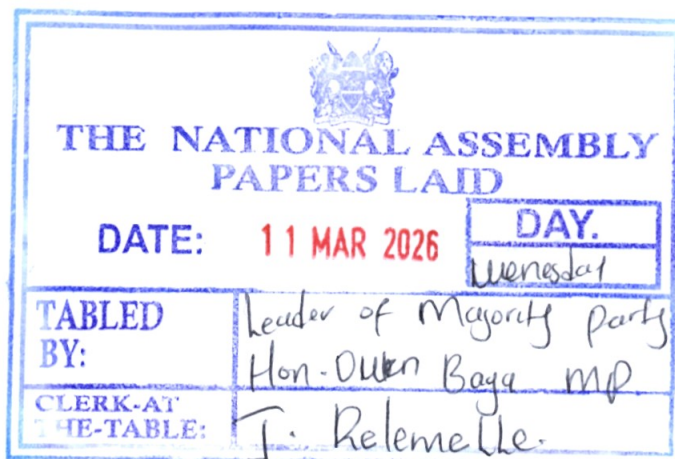 THE NATIONAL ASSEMBLY
PAPERS LAID
DATE: 11 MAR 2026
DAY.
Wenesday
TABLED BY:
Leader of Majority Party
Hon. Owen Baya MP
CLERK-AT THE-TABLE: